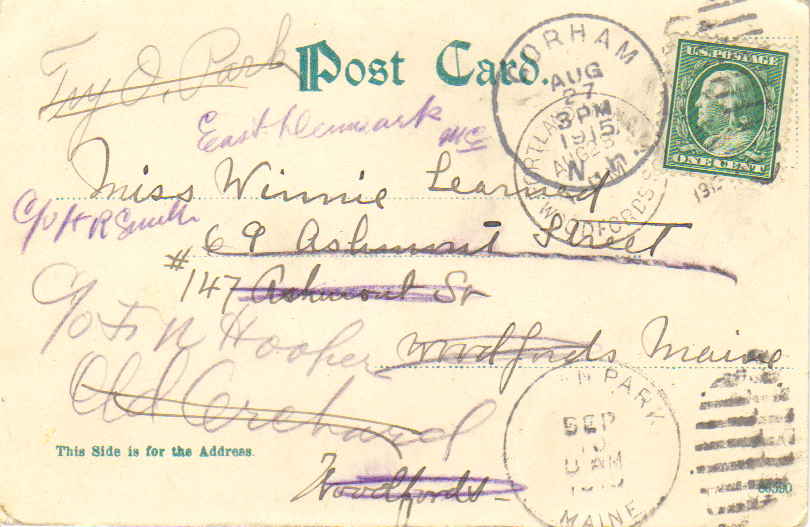 Try O. Park
Post Card.
U.S. POSTAGE
ONE CENT
GORHAM
AUG
27
3 PM
1915
N.H.
PORTLAND, MAINE
AUG
WOODFORDS STA.
East Denmark Me
Miss Winnie Learned
c/o H R Smith
69 Ashmont Street
# 147 Ashmont St
c/o F. N Hooper
Woodfords Maine
Old Orchard
N PARK
SEP
8 AM
MAINE
This Side is for the Address.
Woodfords